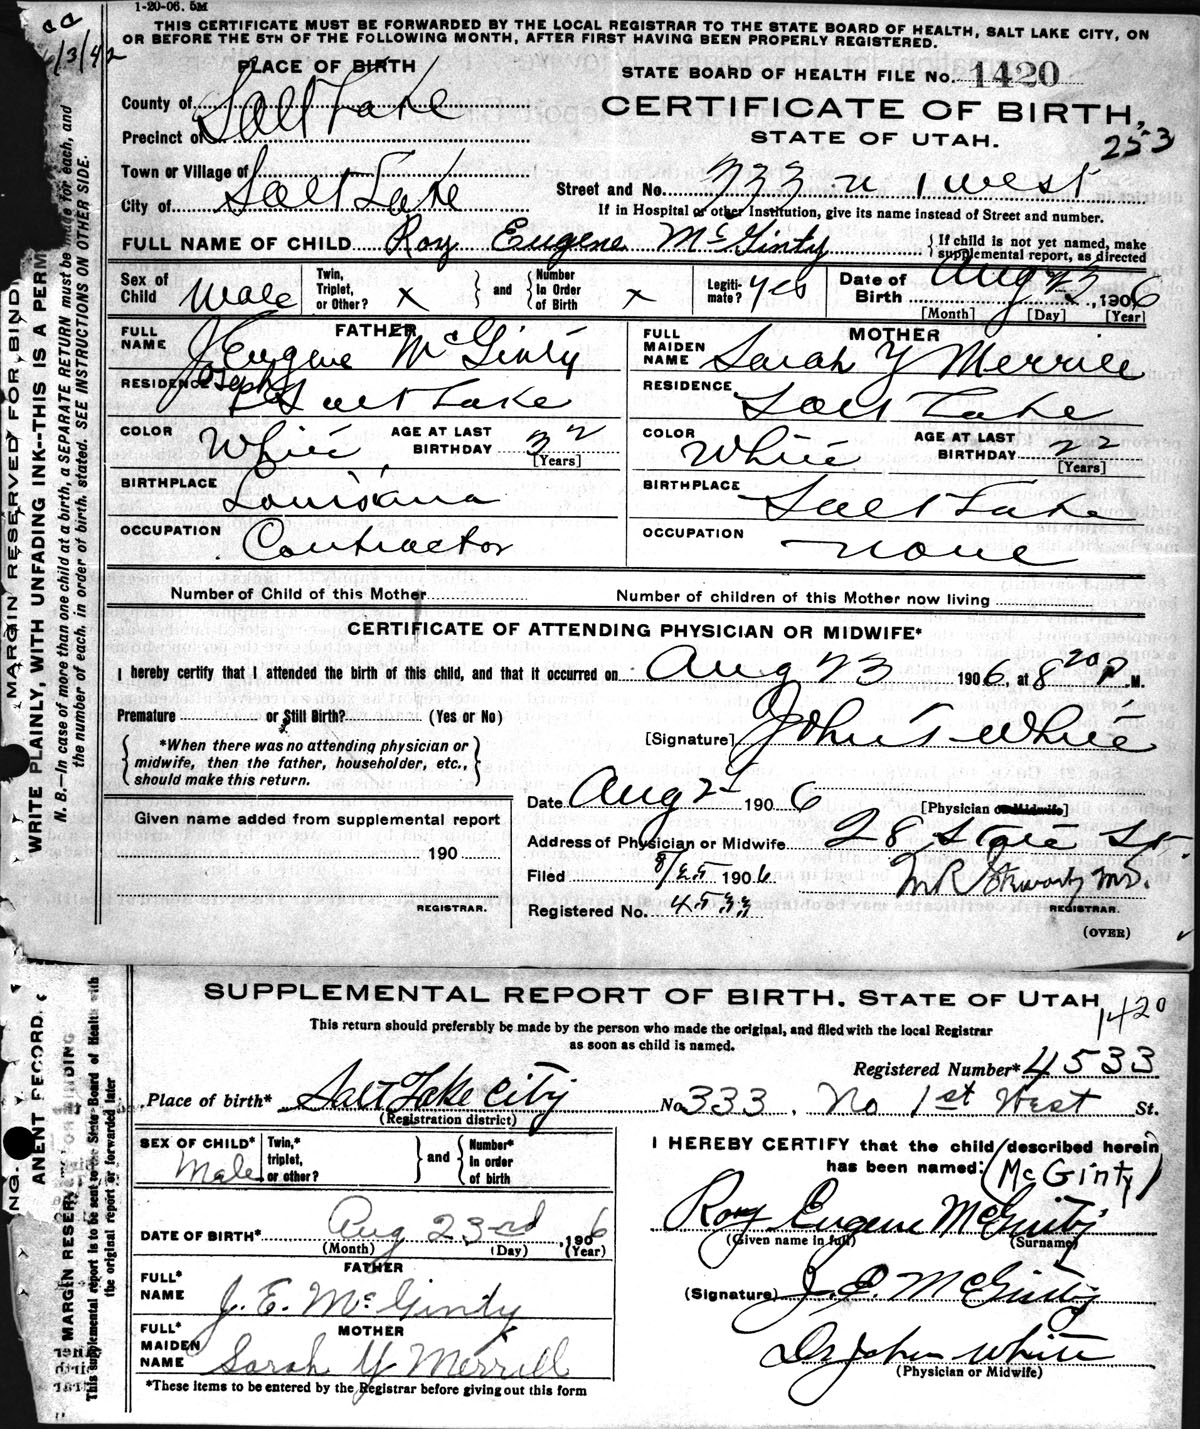 1-20-06. 5M
THIS CERTIFICATE MUST BE FORWARDED BY THE LOCAL REGISTRAR TO THE STATE BOARD OF HEALTH, SALT LAKE CITY, ON
OR BEFORE THE 5TH OF THE FOLLOWING MONTH, AFTER FIRST HAVING BEEN PROPERLY REGISTERED.
/3/42
PLACE OF BIRTH
STATE BOARD OF HEALTH FILE No. 1420
County of Salt Lake
CERTIFICATE OF BIRTH,
Precinct of
STATE OF UTAH.
253
Town or Village of
City of Salt Lake
Street and No. 333 N 1 West
If in Hospital or other Institution, give its name instead of Street and number.
FULL NAME OF CHILD Roy Eugene McGinty
{ If child is not yet named, make supplemental report, as directed
Sex of Child Male
Twin, Triplet, or Other? x } and { Number in Order of Birth x
Legitimate? Yes
Date of Birth Aug 23, 1906
[Month] [Day] [Year]
FATHER
FULL NAME J Eugene McGinty
Joseph
RESIDENCE Salt Lake
COLOR White AGE AT LAST BIRTHDAY 32 [Years]
BIRTHPLACE Louisiana
OCCUPATION Contractor
MOTHER
FULL MAIDEN NAME Sarah Y Merrill
RESIDENCE Salt Lake
COLOR White AGE AT LAST BIRTHDAY 22 [Years]
BIRTHPLACE Salt Lake
OCCUPATION None
Number of Child of this Mother
Number of children of this Mother now living
CERTIFICATE OF ATTENDING PHYSICIAN OR MIDWIFE*
I hereby certify that I attended the birth of this child, and that it occurred on Aug 23 1906, at 8 20 P.M.
Premature or Still Birth? (Yes or No)
[Signature] John S White
{ *When there was no attending physician or midwife, then the father, householder, etc., should make this return. }
Date Aug 25 1906
[Physician or Midwife]
Given name added from supplemental report
190
REGISTRAR.
Address of Physician or Midwife 28 State St.
Filed 8/25 1906
M.D.
Registered No. 4533
REGISTRAR.
(OVER)
MARGIN RESERVED FOR BINDING.
WRITE PLAINLY, WITH UNFADING INK--THIS IS A PERMANENT RECORD.
N. B.—In case of more than one child at a birth, a SEPARATE RETURN must be made for each, and
the number of each, in order of birth, stated. SEE INSTRUCTIONS ON OTHER SIDE.
SUPPLEMENTAL REPORT OF BIRTH. STATE OF UTAH
1420
This return should preferably be made by the person who made the original, and filed with the local Registrar
as soon as child is named.
Registered Number* 4533
Place of birth* Salt Lake City
(Registration district)
No. 333 No 1st West St.
SEX OF CHILD* Male
Twin,* triplet, or other? } and { Number* in order of birth
I HEREBY CERTIFY that the child described herein
has been named: (McGinty)
Roy Eugene McGinty
(Given name in full) (Surname)
DATE OF BIRTH* Aug 23rd, 1906
(Month) (Day) (Year)
FATHER
FULL* NAME J. E. McGinty
(Signature) J. E. McGinty
MOTHER
FULL* MAIDEN NAME Sarah Y Merrill
Dr John White
(Physician or Midwife)
*These items to be entered by the Registrar before giving out this form
MARGIN RESERVED FOR BINDING
This supplemental report is to be sent to the State Board of Health with
the original report or forwarded later